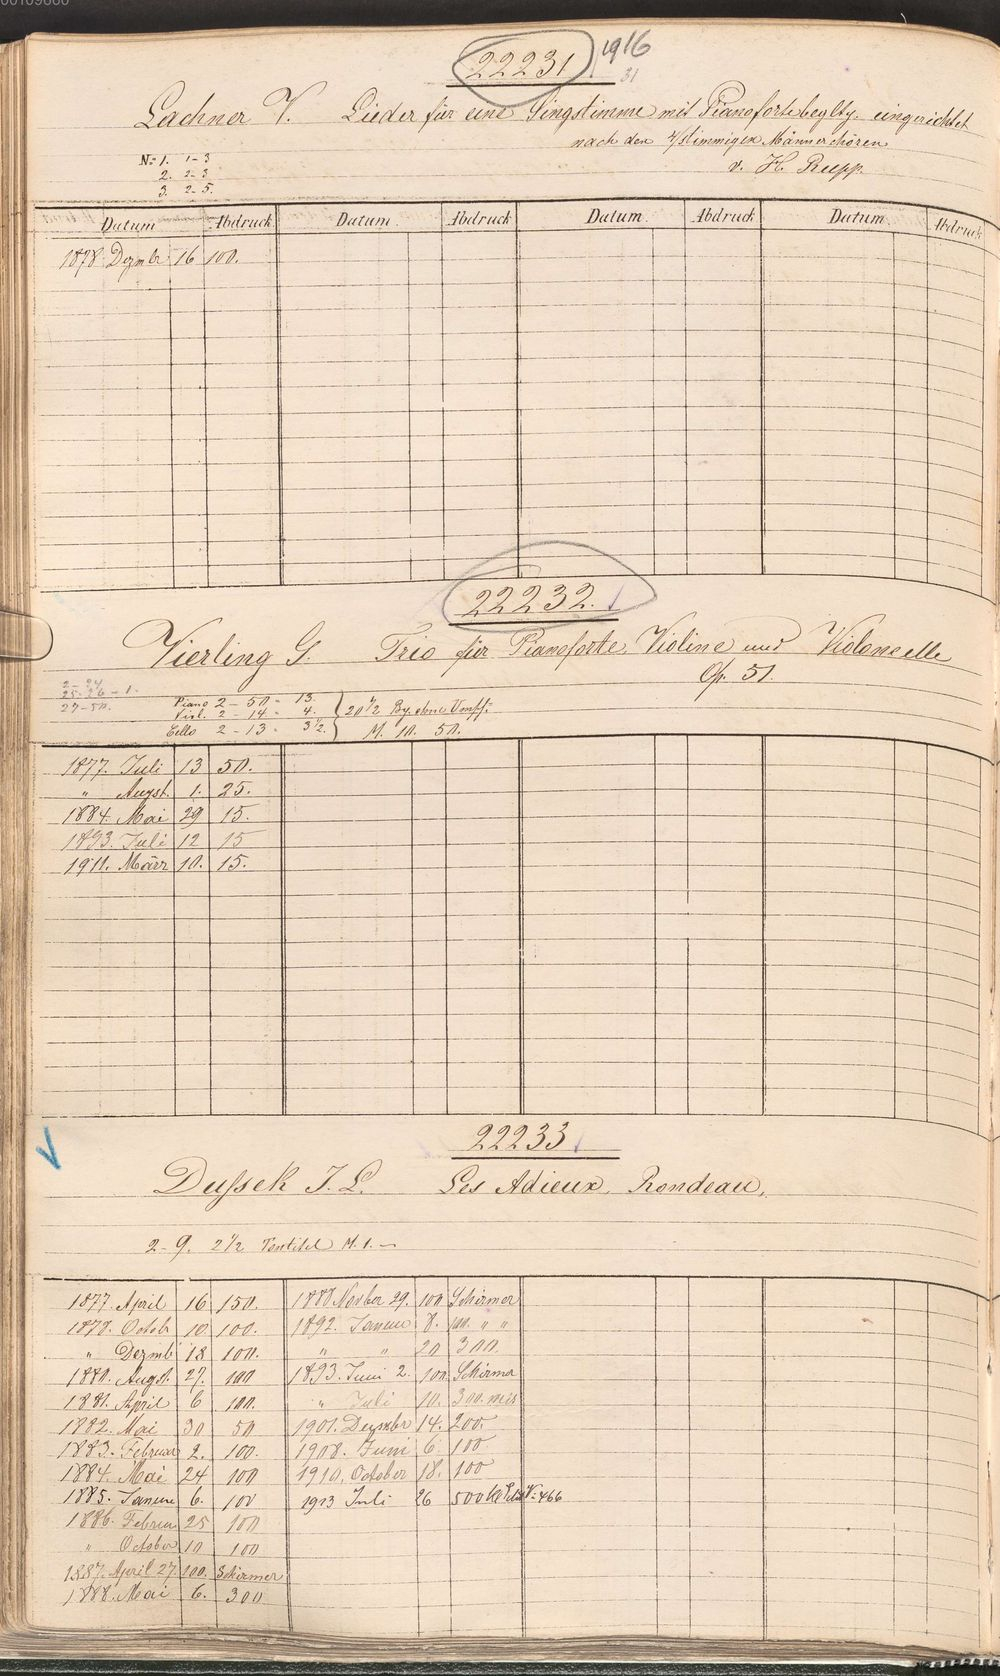 22231. 1916
31
Lachner V. Lieder für eine Singstimme mit Pianofortebegltg. eingerichtet
nach den 4stimmigen Männerchören
v. H. Rupp.
No 1. 1-3
2. 2-3
3. 2-5.
Datum Abdruck Datum. Abdruck Datum. Abdruck Datum. Abdruck
1878. Dezmbr 16 100.
22232.
Vierling G. Trio für Pianoforte, Violine und Violoncelle
Op. 51.
2-24
25-26-1.
27-50.
Piano 2-50 - 13.
Viol. 2-14 - 4.
Cello 2-13 - 3 1/2.
20 1/2 Bg. ohne Umschl.
M. 10. 50.
1877. Juli 13 50.
" Augst. 1. 25.
1884. Mai 29 15.
1893. Juli 12 15
1911. März 10. 15.
22233
Dussek J. L. Les Adieux, Rondeau,
2-9. 2 1/2 M. 1.-
1877. April 16 150. 1888 Novber 29. 100 Schirmer
1878. Octobr 10 100. 1892. Januar 8. 100. " "
" Dezmb 18 100. " " 20 300.
1880. Augst. 27. 100 1893. Juni 2. 100. Schirmer
1881. April 6 100. " Juli 10. 300.
1882. Mai 30 50 1901. Dezmbr 14. 200.
1883. Februar 2. 100. 1908. Juni 6. 100
1884. Mai 24 100 1910. October 18. 100
1885. Januar 6. 100 1913 Juli 26 500
1886. Februar 25 100
" October 10 100
1887. April 27. 100. Schirmer
1888. Mai 6. 300